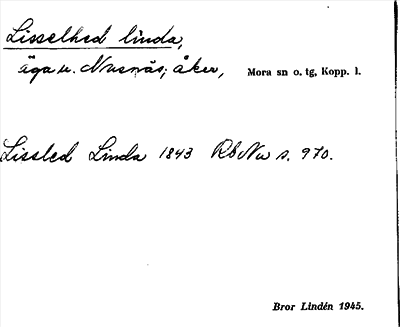 Lisselhed linda,
äga u. Nusnäs; åker, Mora sn o. tg, Kopp. l.
Lissled Linda 1843 RbNu s. 970.
Bror Lindén 1945.